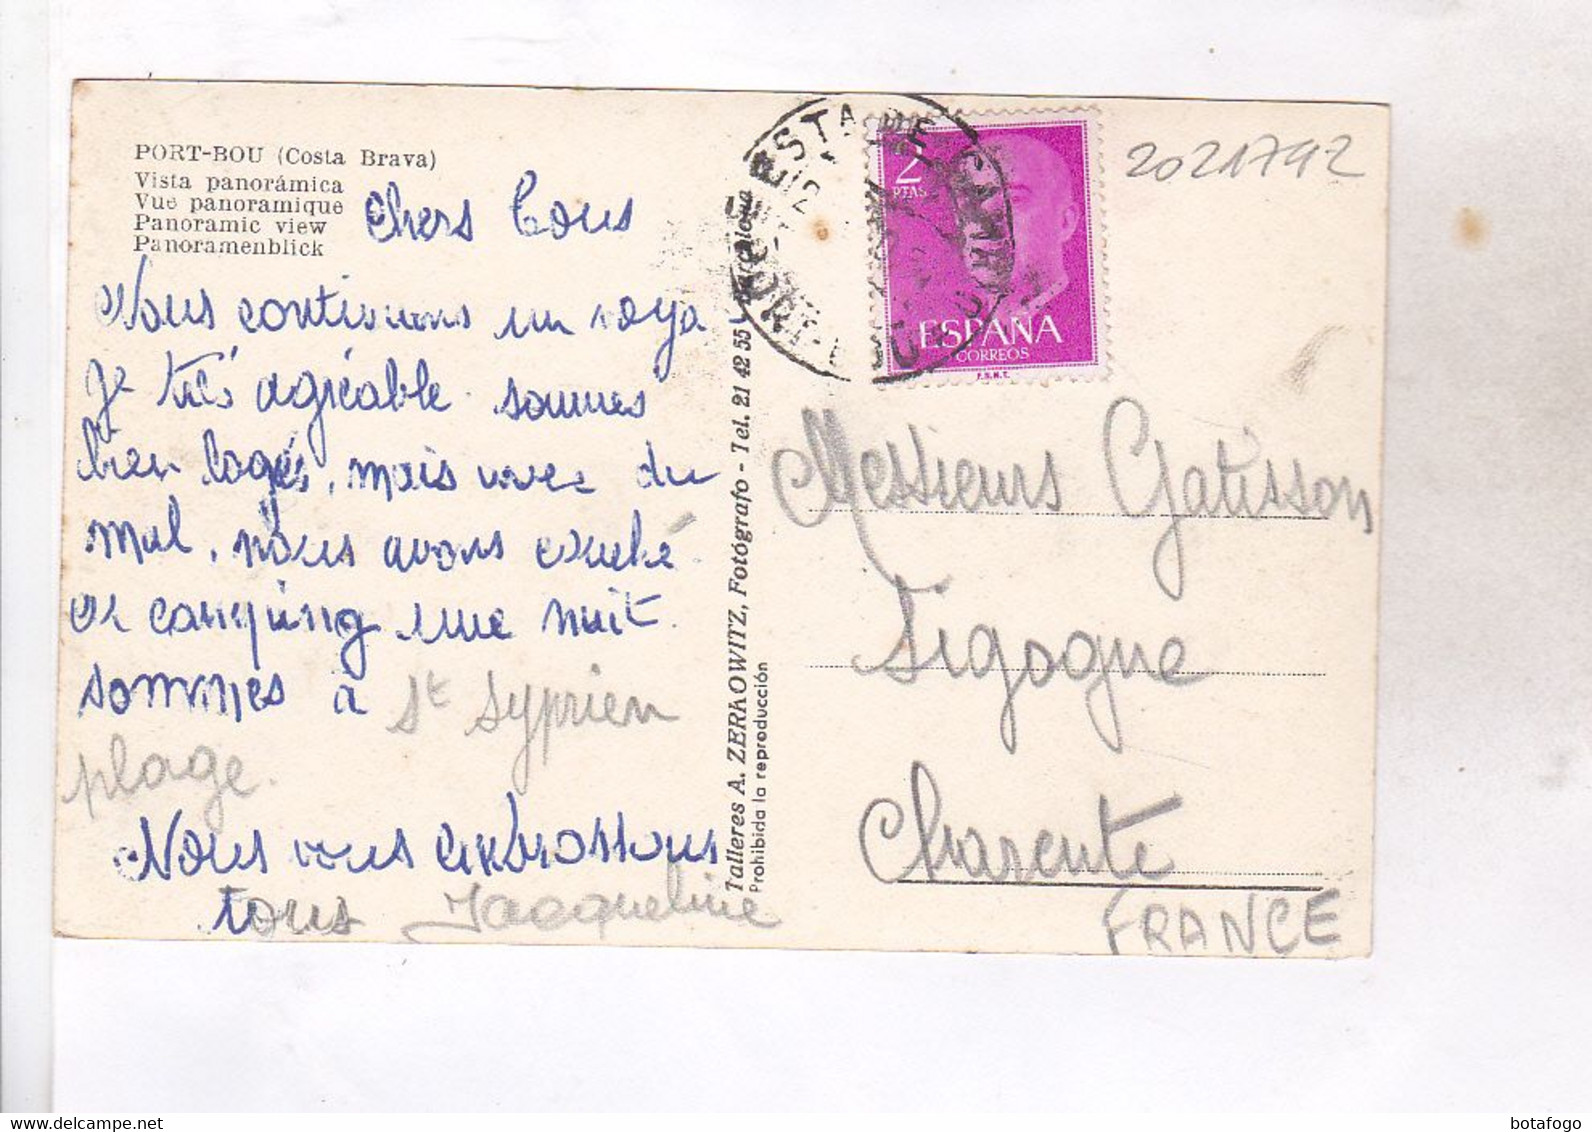 PORT-BOU (Costa Brava)
Vista panorámica
Vue panoramique
Panoramic view
Panoramenblick
Chers Tous
Nous continuons un voya
ge très agréable. sommes
bien logés, mais avec du
mal, nous avons couché
en camping une nuit.
sommes à St Syprien
plage.
Nous vous embrassons
tous Jacqueline
Talleres A. ZERKOWITZ, Fotógrafo - Tel. 21 42 55 - Barcelona
Prohibida la reproducción
2 PTAS
ESPAÑA
CORREOS
F.N.M.T.
2021792
Messieurs Gatisson
Sigogne
Charente
FRANCE
botafogo